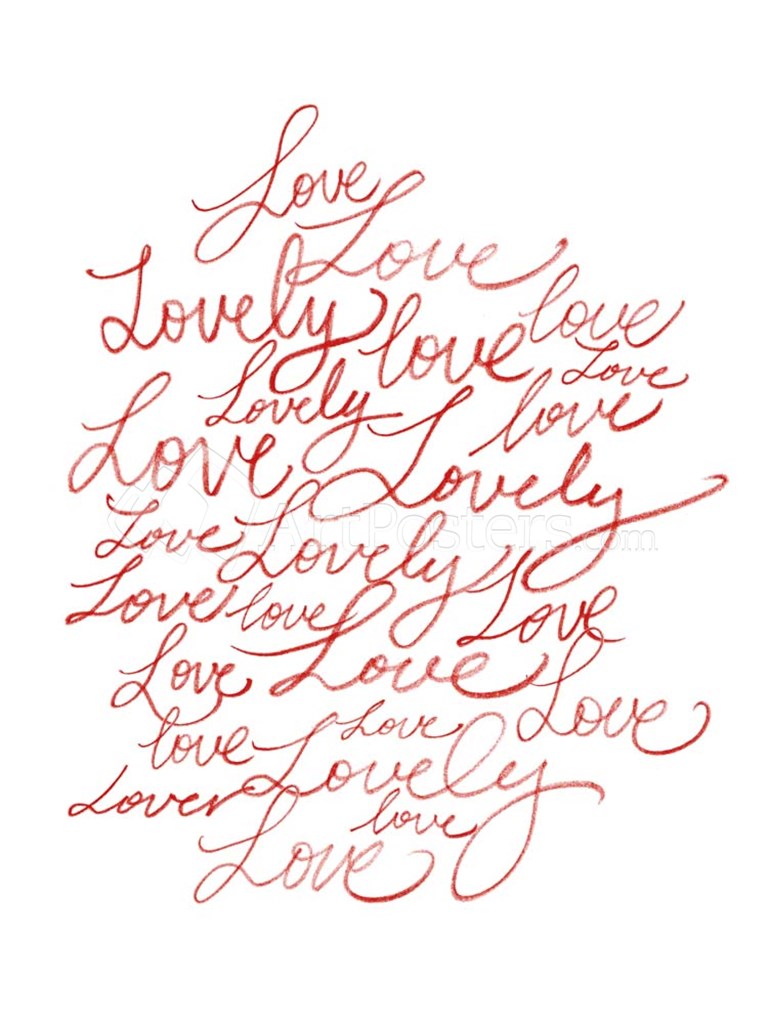 Love
Love
Lovely love love
Love
Lovely love
Love Lovely
ArtPosters.com
Love Lovely
Love love Love
Love Love Love
love Love
Lovely
Lover love
Love